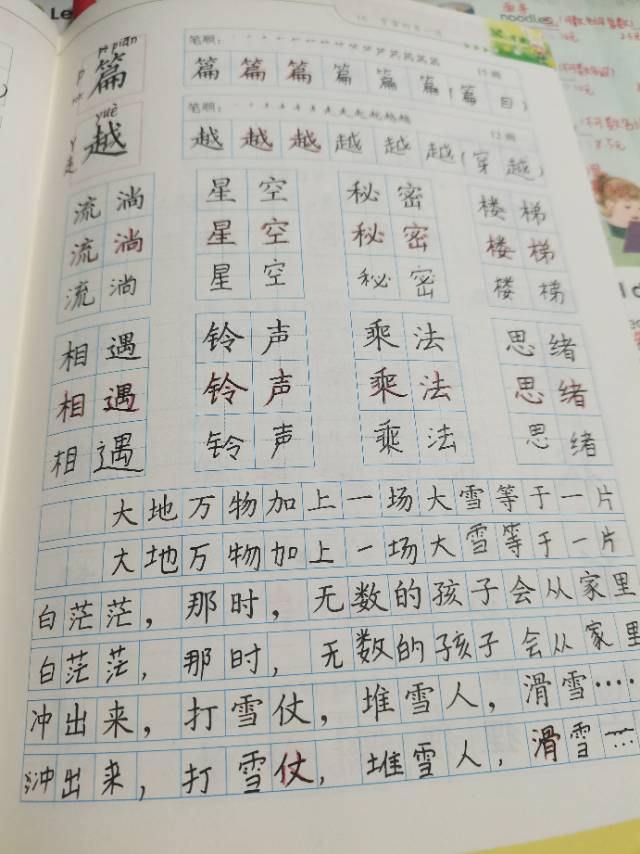 noodles
p piān
笔顺：
篇 篇 篇 篇 篇 篇 篇（篇 目）
yuè
笔顺：
12画
越 越 越 越 越 越 越（穿 越）
流淌 星空 秘密 楼梯
流淌 星空 秘密 楼梯
流淌 星空 秘密 楼梯
相遇 铃声 乘法 思绪
相遇 铃声 乘法 思绪
相遇 铃声 乘法 思绪
大地万物加上一场大雪等于一片
大地万物加上一场大雪等于一片
白茫茫，那时，无数的孩子会从家里
白茫茫，那时，无数的孩子会从家里
冲出来，打雪仗，堆雪人，滑雪……
冲出来，打雪仗，堆雪人，滑雪……